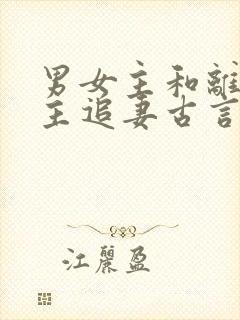 男女主和離
主追妻古言
江麗盈